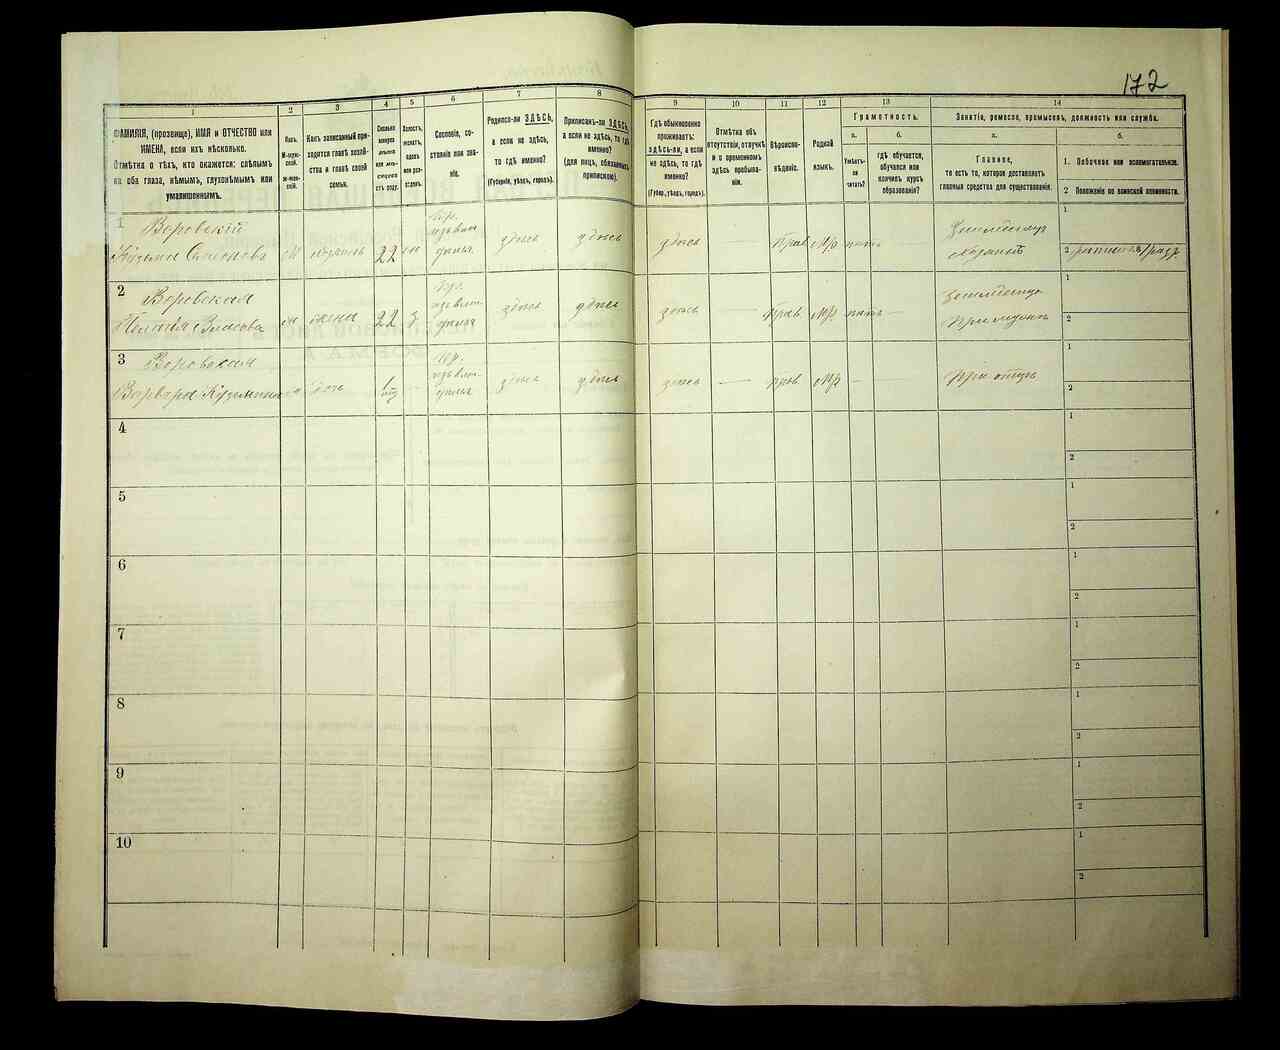 172
1
ФАМИЛІЯ, (прозвище), ИМЯ и ОТЧЕСТВО или
ИМЕНА, если ихъ нѣсколько.
Отмѣтка о тѣхъ, кто окажется: слѣпымъ
на оба глаза, нѣмымъ, глухонѣмымъ или
умалишеннымъ.
2
Полъ.
М-муж-
ской.
Ж-жен-
скій.
3
Какъ записанный при-
ходится главѣ хозяй-
ства и главѣ своей
семьи.
4
Сколько
минуло
лѣтъ
или мѣ-
сяцевъ
отъ роду.
5
Холостъ,
женатъ,
вдовъ
или раз-
веденъ.
6
Сословіе, со-
стояніе или зва-
ніе.
7
Родился-ли ЗДѢСЬ,
а если не здѣсь,
то гдѣ именно?
(Губернія, уѣздъ, городъ).
8
Приписанъ-ли ЗДѢСЬ,
а если не здѣсь, то гдѣ
именно?
(для лицъ, обязанныхъ
припискою).
9
Гдѣ обыкновенно
проживаетъ:
здѣсь-ли, а если
не здѣсь, то гдѣ
именно?
(Губер., уѣздъ, городъ).
10
Отмѣтка объ
отсутствіи, отлучкѣ
и о временномъ
здѣсь пребыва-
ніи.
11
Вѣроиспо-
вѣданіе.
12
Родной
языкъ.
13
Грамотность.
а.
Умѣетъ-
ли
читать?
б.
гдѣ обучается,
обучался или
кончилъ курсъ
образованія?
14
Занятіе, ремесло, промыселъ, должность или служба.
а.
Главное,
то есть то, которое доставляетъ
главныя средства для существованія.
б.
1. Побочное или вспомогательное.
2 Положеніе по воинской повинности.
1
Воровскій
Кузьма
М
хозяинъ
22
здѣсь
здѣсь
здѣсь
—
Прав
Мр
нѣтъ
—
Хозяинъ
1
2
2
Воровская
Пелагія Власова
жена
22
з
здѣсь
здѣсь
здѣсь
—
Прав
Мр
нѣтъ
—
1
2
3
Воровская
Варвара Кузьмина
дочь
здѣсь
здѣсь
здѣсь
—
прав
Мр
—
—
При отцѣ
1
2
4
1
2
5
1
2
6
1
2
7
1
2
8
1
2
9
1
2
10
1
2